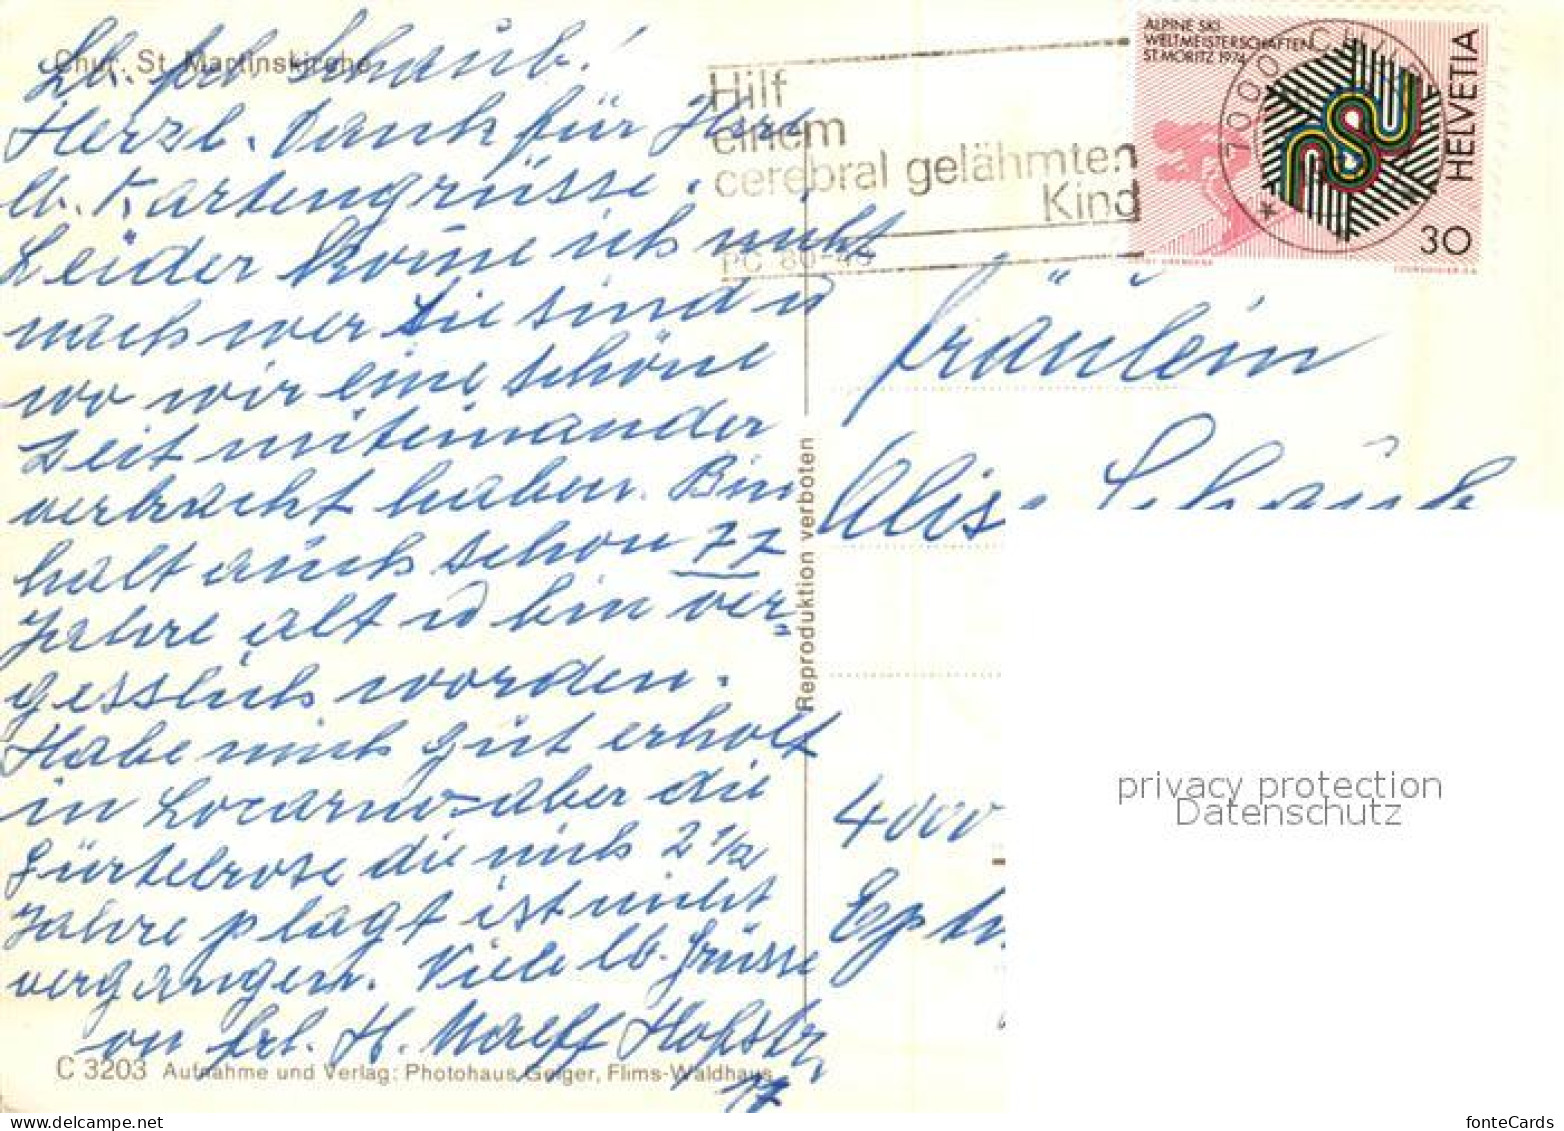 Chur. St. Martinskirche
Lb. frl Schaub!
Herzl. Dank für Ihre
lb. Kartengrüsse.
Leider kome ich nicht
nach wer Sie sind u
wo wir eine schöne
Zeit miteinander
verbracht haben. Bin
halt auch schon 77
Jahre alt u bin ver=
gesslich worden.
Habe mich gut erholt
in Locarno-aber die
Gürtelrose die mich 2 1/2
Jahre plagt ist nicht
vergangen. Viele lb. Grüsse
von frl. H.
17
C 3203 Aufnahme und Verlag: Photohaus Geiger, Flims-Waldhaus
Reproduktion verboten
Hilf
einem
cerebral gelähmten
Kind
ALPINE SKI
WELTMEISTERSCHAFTEN
ST. MORITZ 1974
HELVETIA
30
7000 CHUR
Fräulein
Schaub
4000
privacy protection
Datenschutz
www.delcampe.net
fonteCards